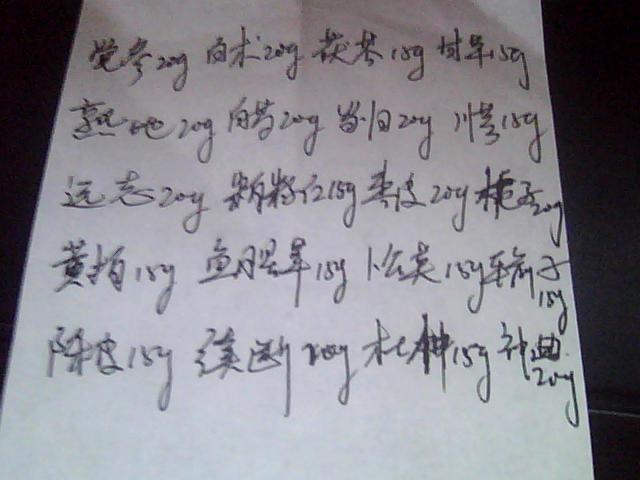 党参20g 白术20g 茯苓15g 甘草15g
熟地20g 白芍20g 当归20g 川芎15g
远志20g 15g 皮20g 栀子20g
黄柏15g 鱼腥草15g 公英15g 车前子15g
陈皮15g 续断20g 杜仲15g 神曲20g